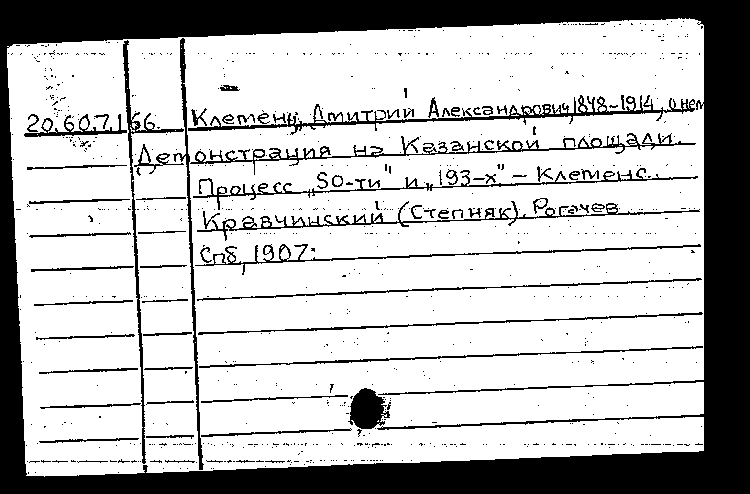 20.60.7.166. Клеменц, Дмитрий Александрович, 1848-1914, о нем
Демонстрация на Казанской площади.
Процесс „50-ти" и „193-х" - Клеменс.
Кравчинский (Степняк). Рогачев
Спб, 1907.